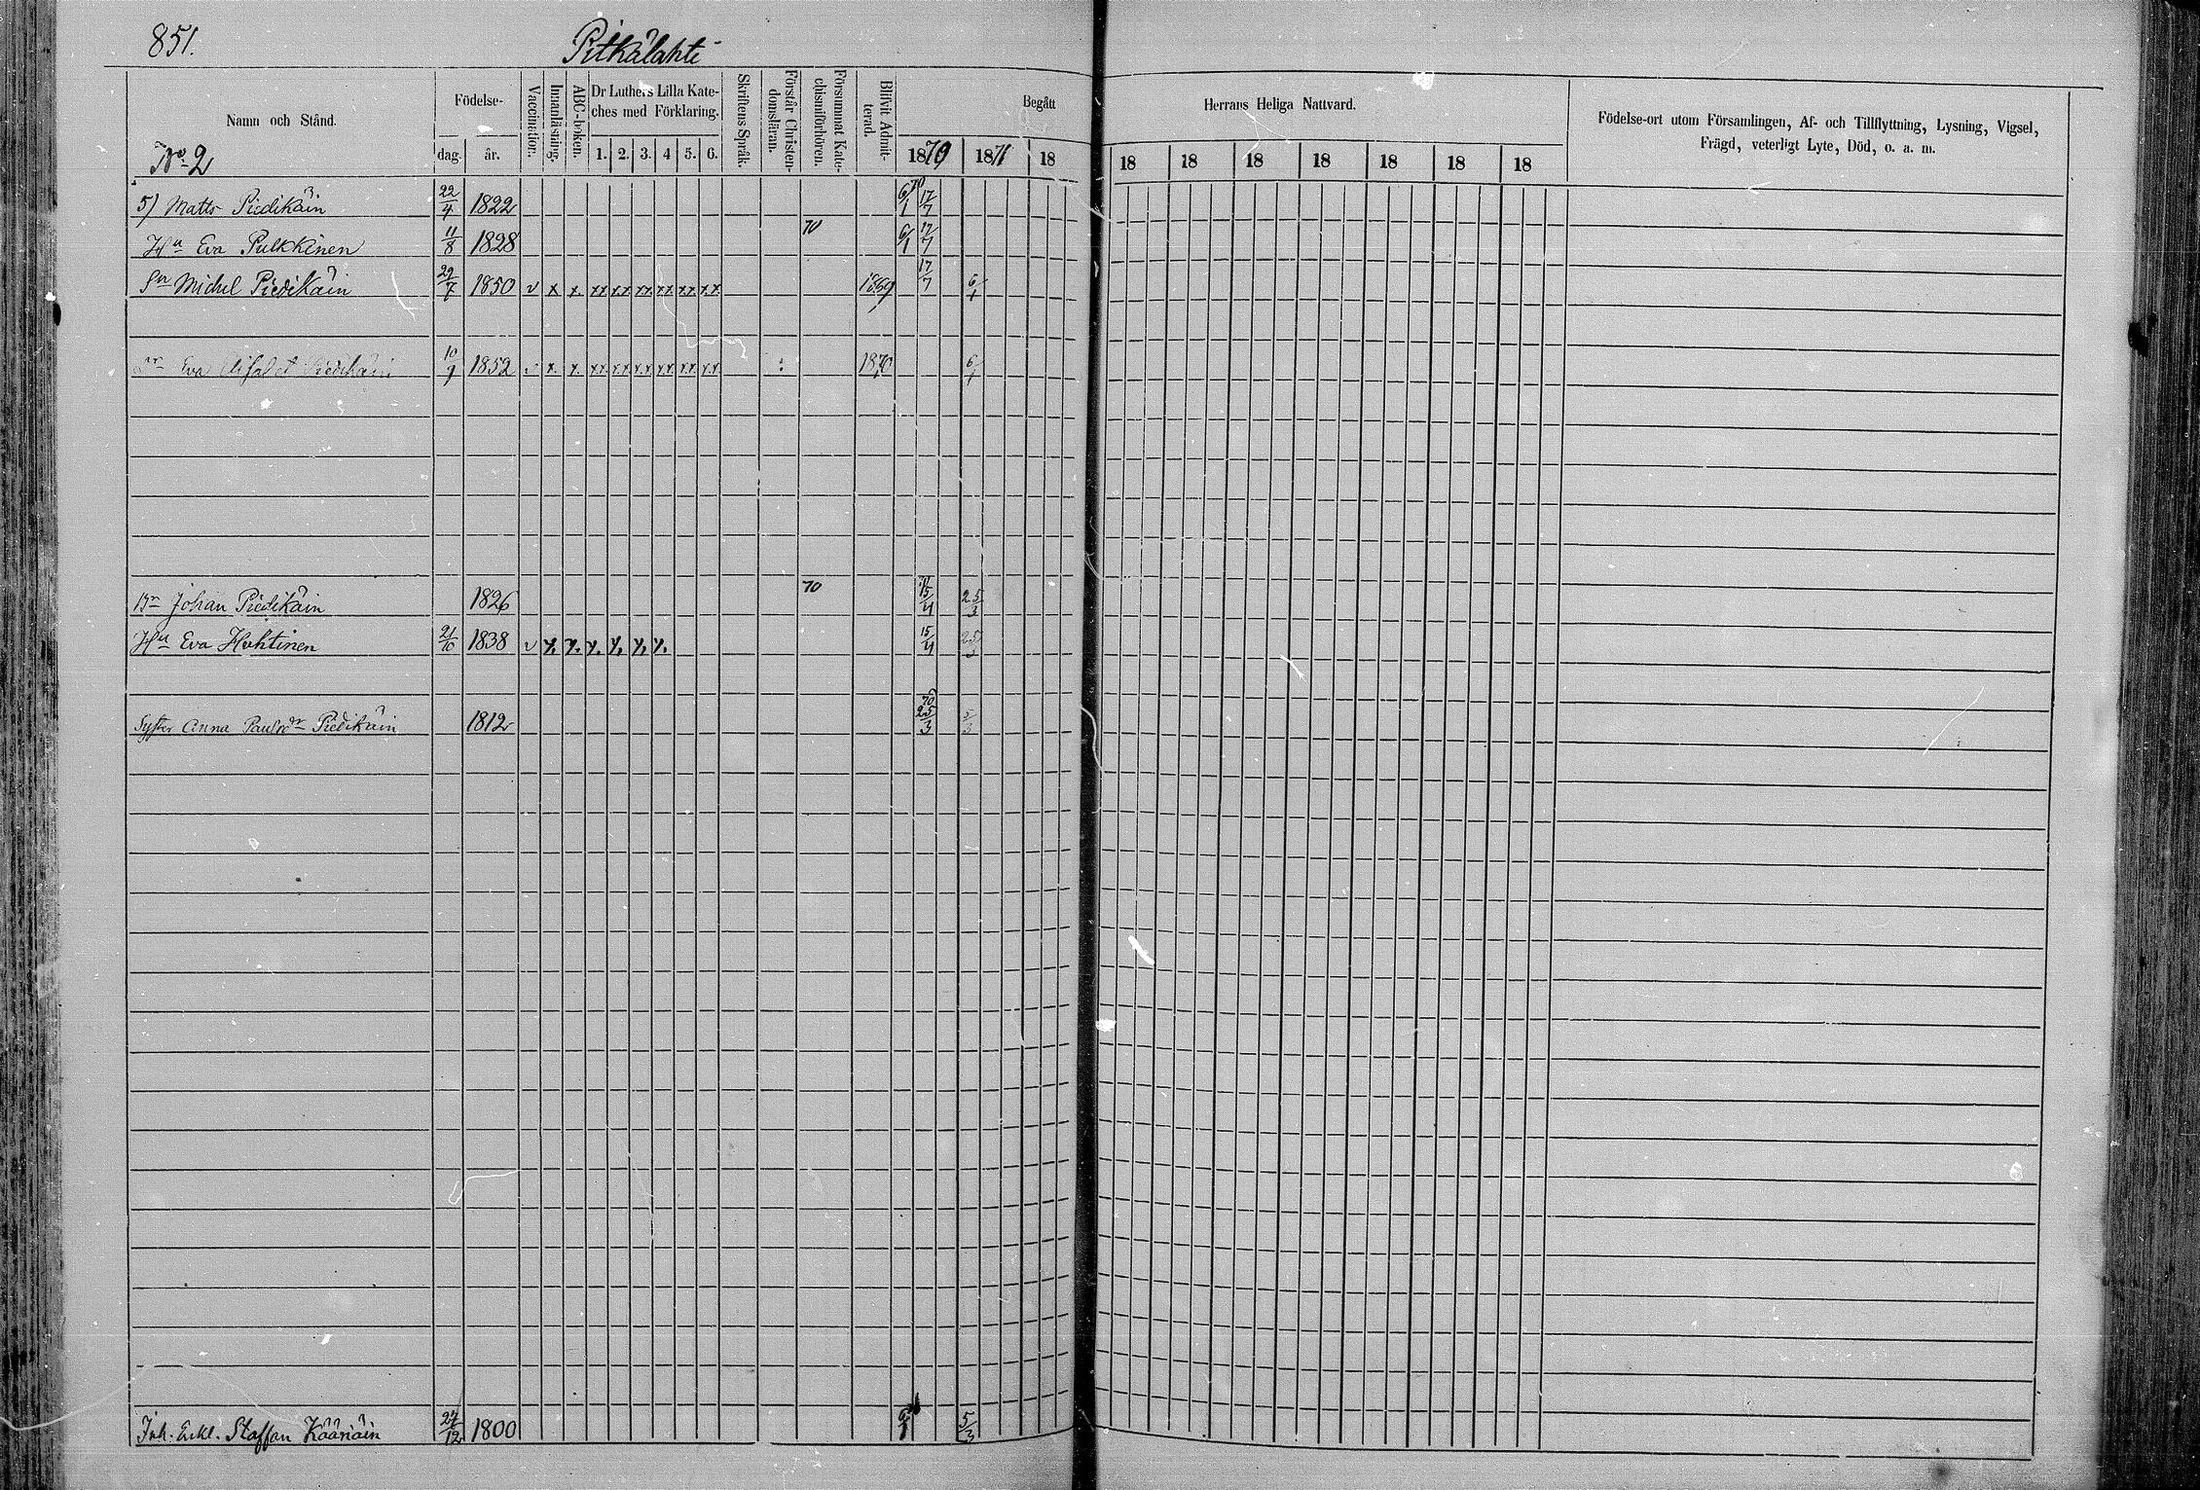 851.
Pitkälahti
Namn och Stånd.
Födelse-
dag. år.
Vaccination.
Innanläsning.
ABC-boken.
Dr Luthers Lilla Kate-
ches med Förklaring.
1. 2. 3. 4 5. 6.
Skriftens Språk.
Förstår Christen-
domsläran.
Försummat Kate-
chismiförhören.
Blifvit Admit-
terad.
Begått
Herrans Heliga Nattvard.
1870 1871 18 18 18 18 18 18 18 18
Födelse-ort utom Församlingen, Af- och Tillflyttning, Lysning, Vigsel,
Frägd, veterligt Lyte, Död, o. a. m.
No 2
5) Matts Piedikäin 22/4 1822 6/1 70 17/7
Hu Eva Pulkkinen 11/8 1828 70 6/1 17/7
Sn Michel Piedikäin 29/7 1850 v x x. xx xx xx. xx xx. xx. 1869 17/7 6/1
Dr Eva Elisabet Piedikäin 10/9 1852 v x. x. xx. xx xx xx xx. xx : 1870 6/1
Br Johan Piedikäin 1826 70 15/4 25/3
Hu Eva Huhtinen 21/10 1838 v x. x. x. x. x. x. 15/4 25/3
Syster Anna Paulsdr Piedikäin 1812 70 25/3 5/3
Inh. Enkl. Staffan Kääriäin 24/12 1800 6/1 5/3